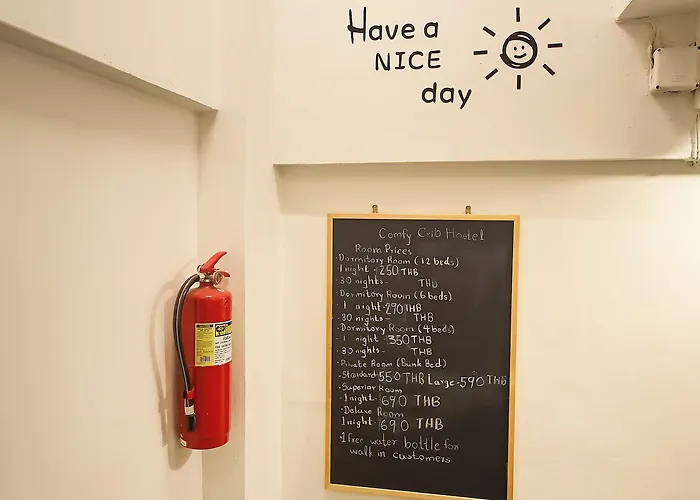 Have a
NICE
day
Comfy Crib Hostel
Room Prices
·Dormitory Room (12 beds)
1 night - 250 THB
-30 nights - THB
·Dormitory Room (6 beds)
- 1 night - 290 THB
-30 nights - THB
·Dormitory Room (4 beds)
- 1 night - 350 THB
- 30 nights - THB
·Private Room (Bunk Bed)
-Standard-550 THB Large-590 THB
·Superior Room
-1 night - 690 THB
·Deluxe Room
1 night - 690 THB
·1 Free water bottle for
walk in customers